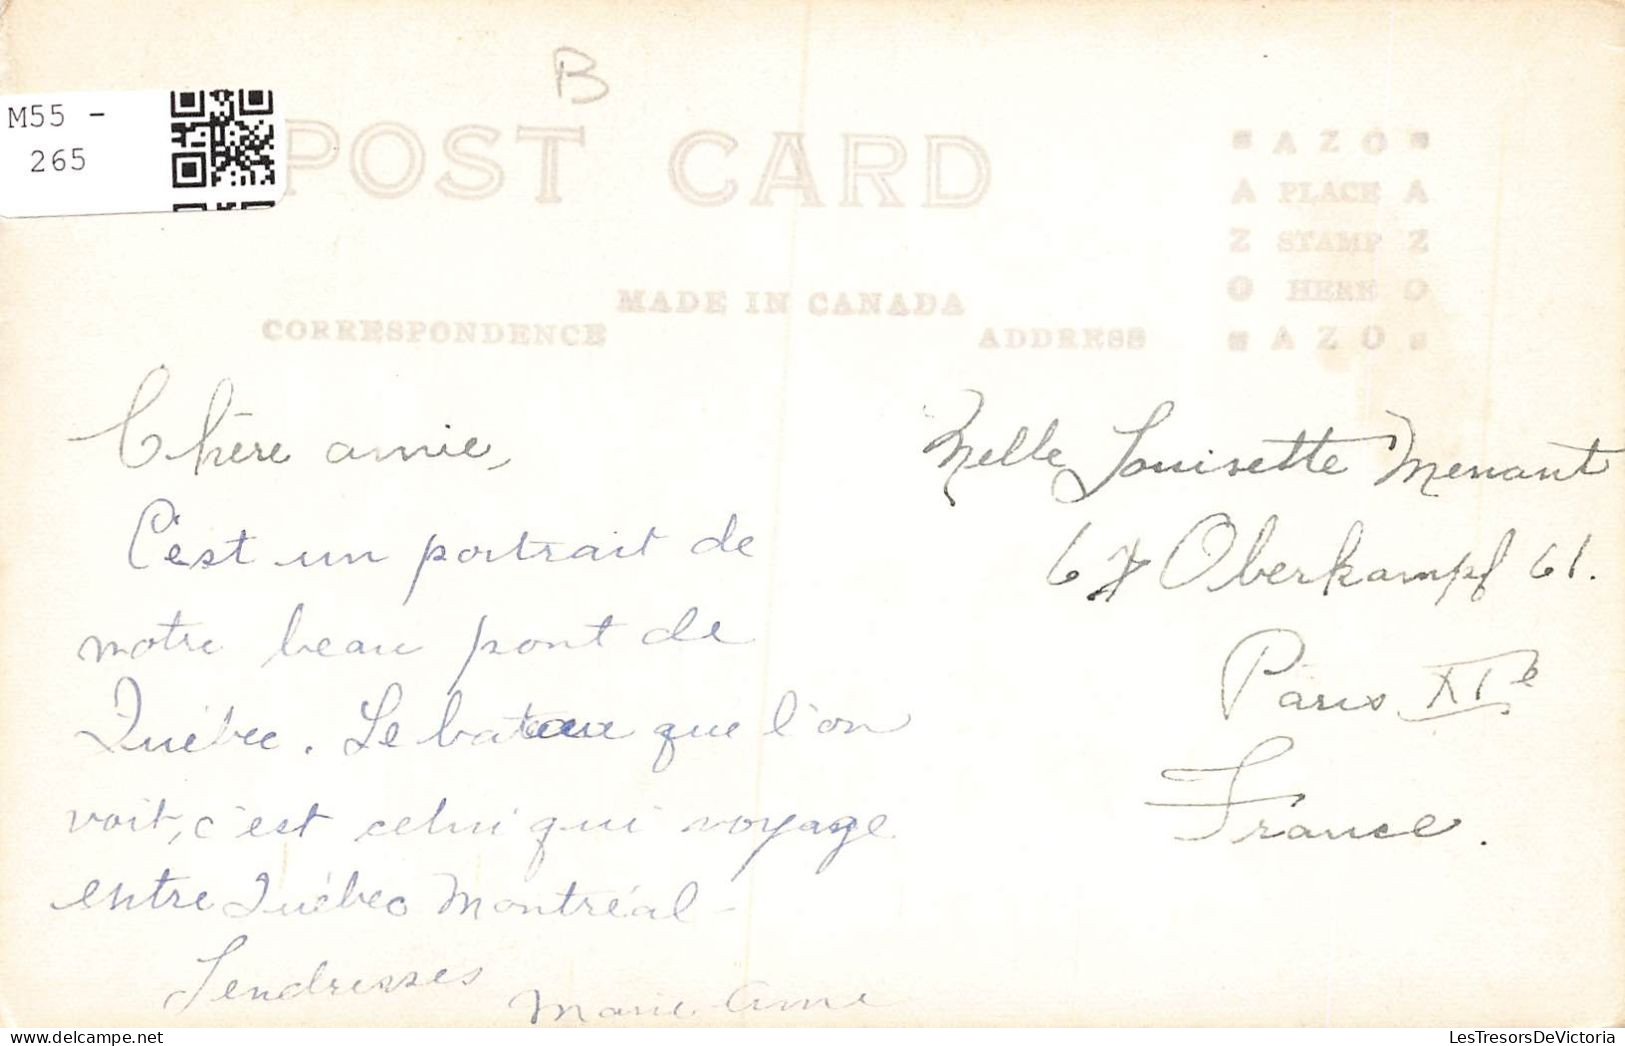 B
M55 -
265
POST CARD
AZO
A PLACE A
Z STAMP Z
O HERE O
AZO
MADE IN CANADA
CORRESPONDENCE
ADDRESS
Chère amie,
C'est un portrait de
notre beau pont de
Québec. Le bateau que l'on
voit, c'est celui qui voyage
entre Québec Montréal -
Tendresses
Marie-Anne
Melle Louisette Menant
67 Oberkampf 61.
Paris XIe
France.
LesTresorsDeVictoria